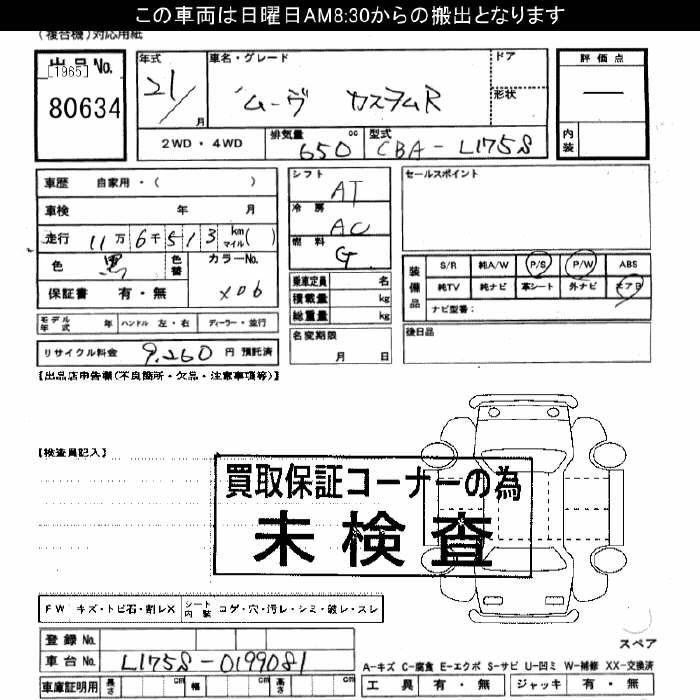 この車両は日曜日AM8:30からの搬出となります
(複合機)対応用紙
出品No.
[1965]
80634
年式 21/ 月
車名・グレード
ムーヴ カスタムR
ドア
形状
評価点
—
内装
2WD・4WD
排気量 650 cc
型式 CBA-L175S
車歴 自家用・( )
車検 年 月
走行 11万6千513 km マイル( )
色 黒 色替
カラーNo. X06
保証書 有・無
シフト AT
冷房 AC
燃料 G
乗車定員 名
積載量 kg
総重量 kg
名変期限 月 日
セールスポイント
装備品
S/R 純A/W P/S P/W ABS
純TV 純ナビ 革シート 外ナビ エアB
ナビ型番:
後日品
モデル年式 年 ハンドル 左・右 ディーラー・並行
リサイクル料金 9,260 円 預託済
【出品店申告欄(不良箇所・欠品・注意事項等)】
【検査員記入】
買取保証コーナーの為
未検査
FW キズ・トビ石・割レX シート内装 コゲ・穴・汚レ・シミ・破レ・スレ
登録No.
車台No. L175S-0199081
車庫証明用 長さ cm 幅 cm 高さ cm
スペア
A-キズ C-腐食 E-エクボ S-サビ U-凹ミ W-補修 XX-交換済
工具 有・無 ジャッキ 有・無